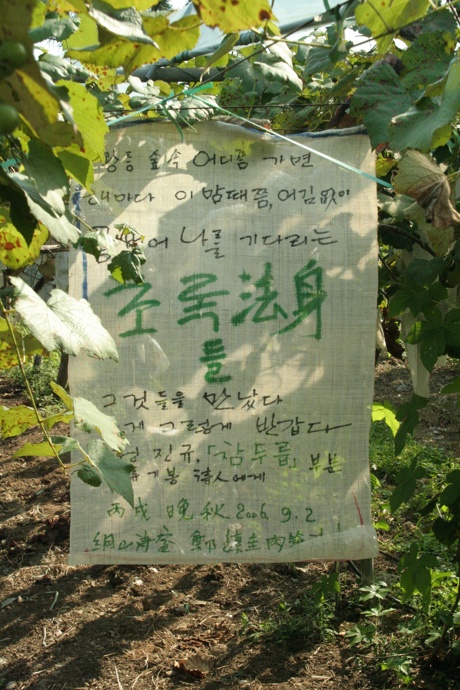 광릉 숲속 어디쯤 가면
해마다 이맘때쯤, 어김없이
어 나를 기다리는
초록法身
들
그것들을 만났다
게 그렇게 반갑다
진규, 「참두릅」 부분
기봉 詩人에게
丙戌 晩秋 2006. 9. 2